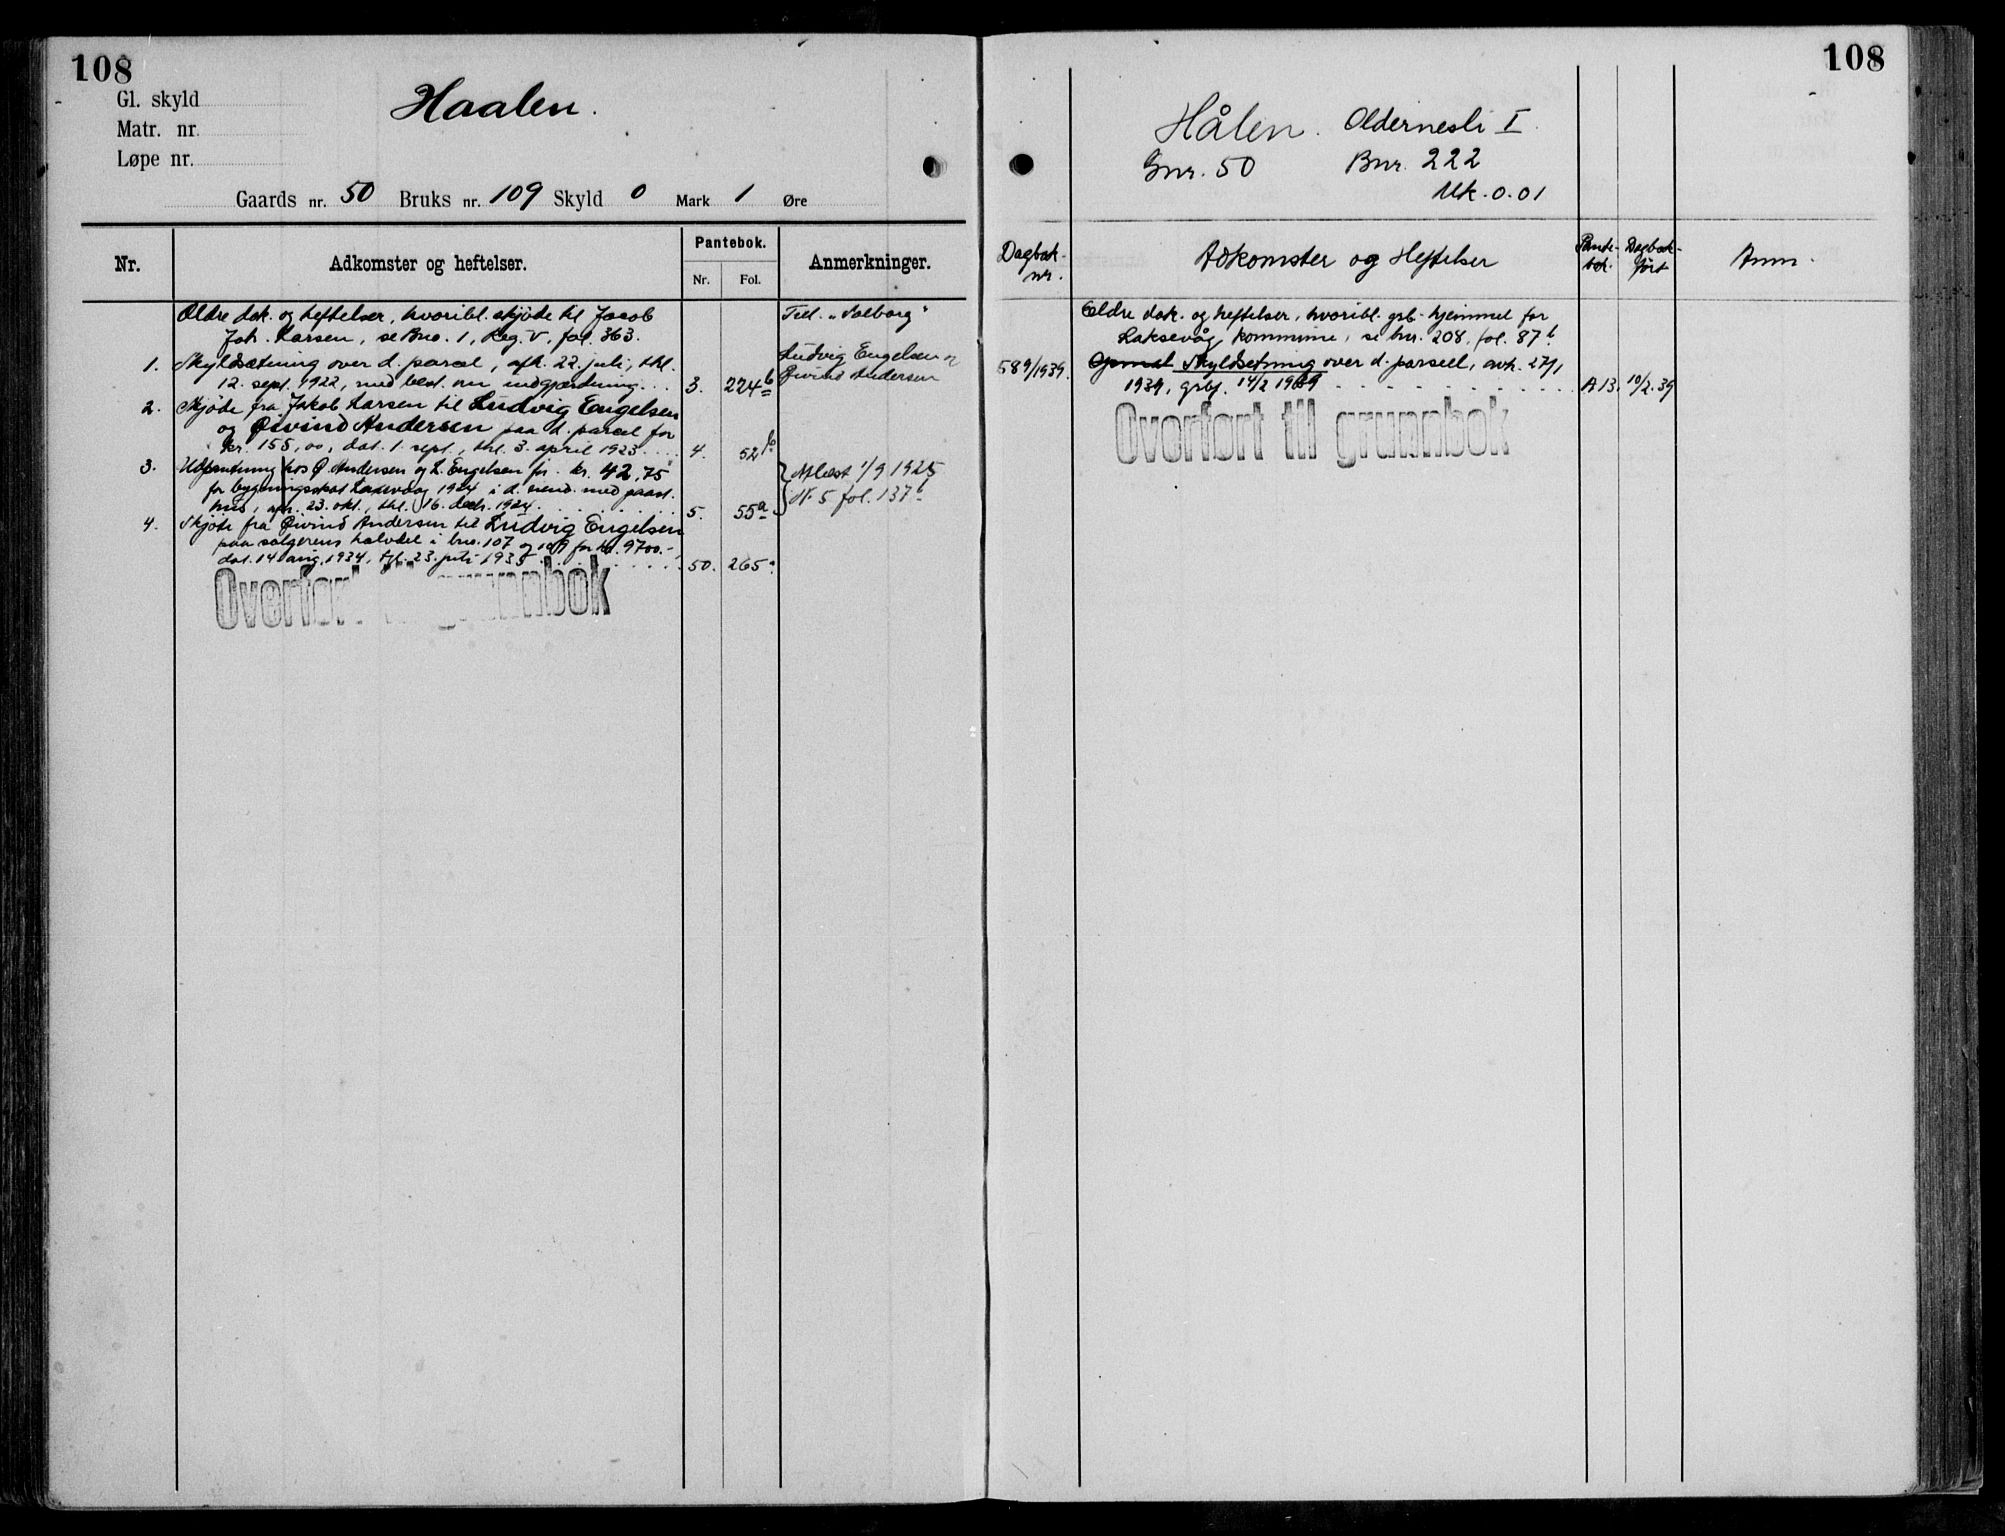 108
Gl. skyld
Matr. nr.
Løpe nr.
Haalen.
Gaards nr. 50 Bruks nr. 109 Skyld 0 Mark 1 Øre
Nr.
Adkomster og heftelser.
Pantebok.
Nr. Fol.
Anmerkninger.
Ældre dok. og heftelser, hvoribl. skjøde til Jacob
Joh. Larsen, se Bno. 1, Reg. V, fol. 363.
Tell. "Solborg"
1. Skyldsætning over d. parcel, afh. 22. juli, thl.
12. sept. 1922, med best. om indgjærdning. . . 3. 224b
Ludvig Engelsen og
Øivind Andersen
2. Skjøde fra Jakob Larsen til Ludvig Engelsen
og Øivind Andersen paa d. parcel for
kr. 155,00, dat. 1. sept., thl. 3. april 1923. . . . 4. 52b
3. Udpantning hos Ø. Andersen og L. Engelsen for kr. 42,75
for bygningsskat Laxevaag 1924 i d. eiend. med paast.
hus, afh. 23. okt., thl. 16. decbr. 1924. . . . . . 5. 55a
Aflæst 1/9 1925
N. 5 fol. 137b
4. Skjøte fra Øivind Andersen til Ludvig Engelsen
paa sælgerens halvdel i bno. 107 og 109 for kr. 9700.-,
dat. 14 aug. 1934, tgl. 23. juli 1935 . . . . . . 50. 265a
Overført til grunnbok
108
Hålen. Oldernesli I.
Gnr. 50 Bnr. 222
Mk. 0.01
Dagbok-
nr.
Adkomster og Heftelser
Pante-
bok.
Dagbok-
ført
Anm.
Eldre dok. og heftelser, hvoribl. grb. hjemmel for
Laksevåg kommune, se bnr. 208, fol. 87b
589/1939. Skyldsetning over d. parsell, avh. 27/1
1939, grbf. 14/2 1939 . . . . . . . . A 13. 10/2. 39
Overført til grunnbok